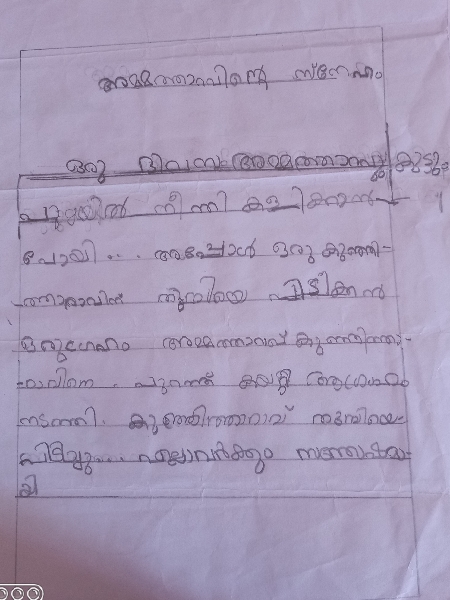 അമ്മത്താറാവിന്റെ സ്നേഹം
ഒരു ദിവസം അമ്മത്താറാവും കുട്ടും
പുഴയിൽ നീന്തി കളിക്കാൻ
പോയി... അപ്പോൾ ഒരു കുഞ്ഞി-
ത്താറാവിന് തുമ്പിയെ പിടിക്കാൻ
ഒരുമോഹം അമ്മത്താറാവ് കുഞ്ഞിത്താ-
റാവിനെ പുറത്ത് കയറ്റി ആഗ്രഹം
നടത്തി. കുഞ്ഞിത്താറാവ് തുമ്പിയെ
പിടിച്ചു.... എല്ലാവർക്കും സന്തോഷമാ-
യി